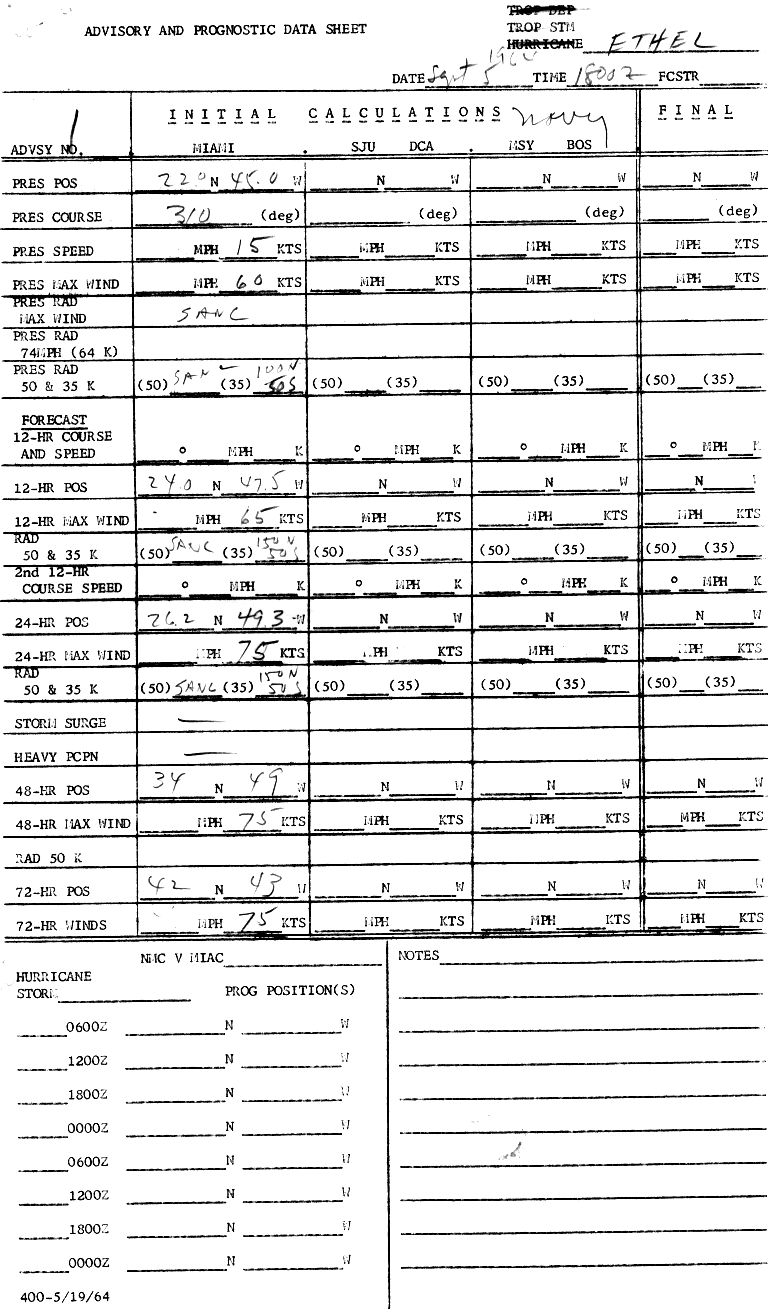 TROP DEP
ADVISORY AND PROGNOSTIC DATA SHEET TROP STM
HURRICANE ETHEL
1964
DATE Sept 5 TIME 1800Z FCSTR
INITIAL CALCULATIONS Navy FINAL
ADVSY NO. 1 MIAMI SJU DCA MSY BOS
PRES POS 22.0 N 45.0 W N W N W N W
PRES COURSE 310 (deg) (deg) (deg) (deg)
PRES SPEED MPH 15 KTS MPH KTS MPH KTS MPH KTS
PRES MAX WIND MPH 60 KTS MPH KTS MPH KTS MPH KTS
PRES RAD
MAX WIND SANC
PRES RAD
74MPH (64 K)
PRES RAD 100N
50 & 35 K (50) SANC (35) 50S (50) (35) (50) (35) (50) (35)
FORECAST
12-HR COURSE
AND SPEED ° MPH K ° MPH K ° MPH K ° MPH K
12-HR POS 24.0 N 47.5 W N W N W N
12-HR MAX WIND MPH 65 KTS MPH KTS MPH KTS MPH KTS
RAD 150N
50 & 35 K (50) SANC (35) 50S (50) (35) (50) (35) (50) (35)
2nd 12-HR
COURSE SPEED ° MPH K ° MPH K ° MPH K ° MPH K
24-HR POS 26.2 N 49.3 W N W N W N W
24-HR MAX WIND MPH 75 KTS MPH KTS MPH KTS MPH KTS
RAD 150N
50 & 35 K (50) SANC (35) 50S (50) (35) (50) (35) (50) (35)
STORM SURGE —
HEAVY PCPN —
48-HR POS 34 N 49 W N W N W N W
48-HR MAX WIND MPH 75 KTS MPH KTS MPH KTS MPH KTS
RAD 50 K
72-HR POS 42 N 43 W N W N W N W
72-HR WINDS MPH 75 KTS MPH KTS MPH KTS MPH KTS
NMC V MIAC NOTES
HURRICANE
STORM PROG POSITION(S)
0600Z N W
1200Z N W
1800Z N W
0000Z N W
0600Z N W
1200Z N W
1800Z N W
0000Z N W
400-5/19/64